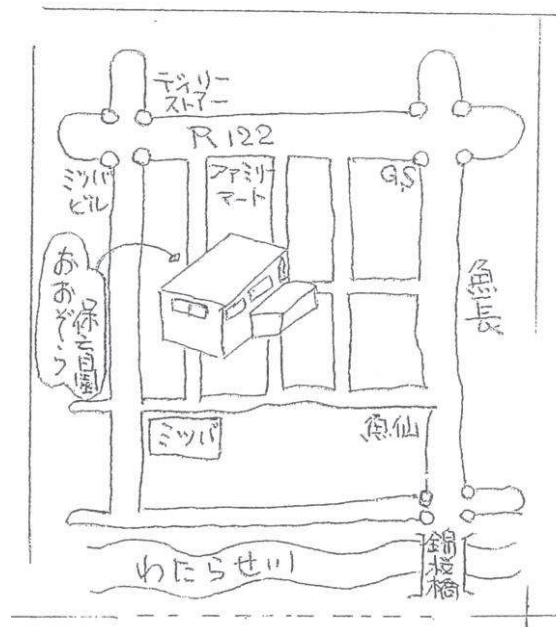 デイリー
ストアー
R122
ミツバ
ビル
ファミリー
マート
GS
おおぞら
保育園
魚長
ミツバ
魚仙
わたらせ川
錦桜橋